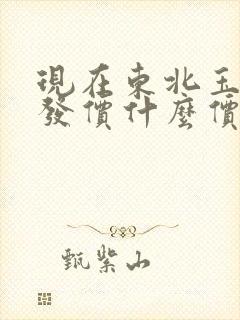 現在東北玉
發價什麼價
甄紫山